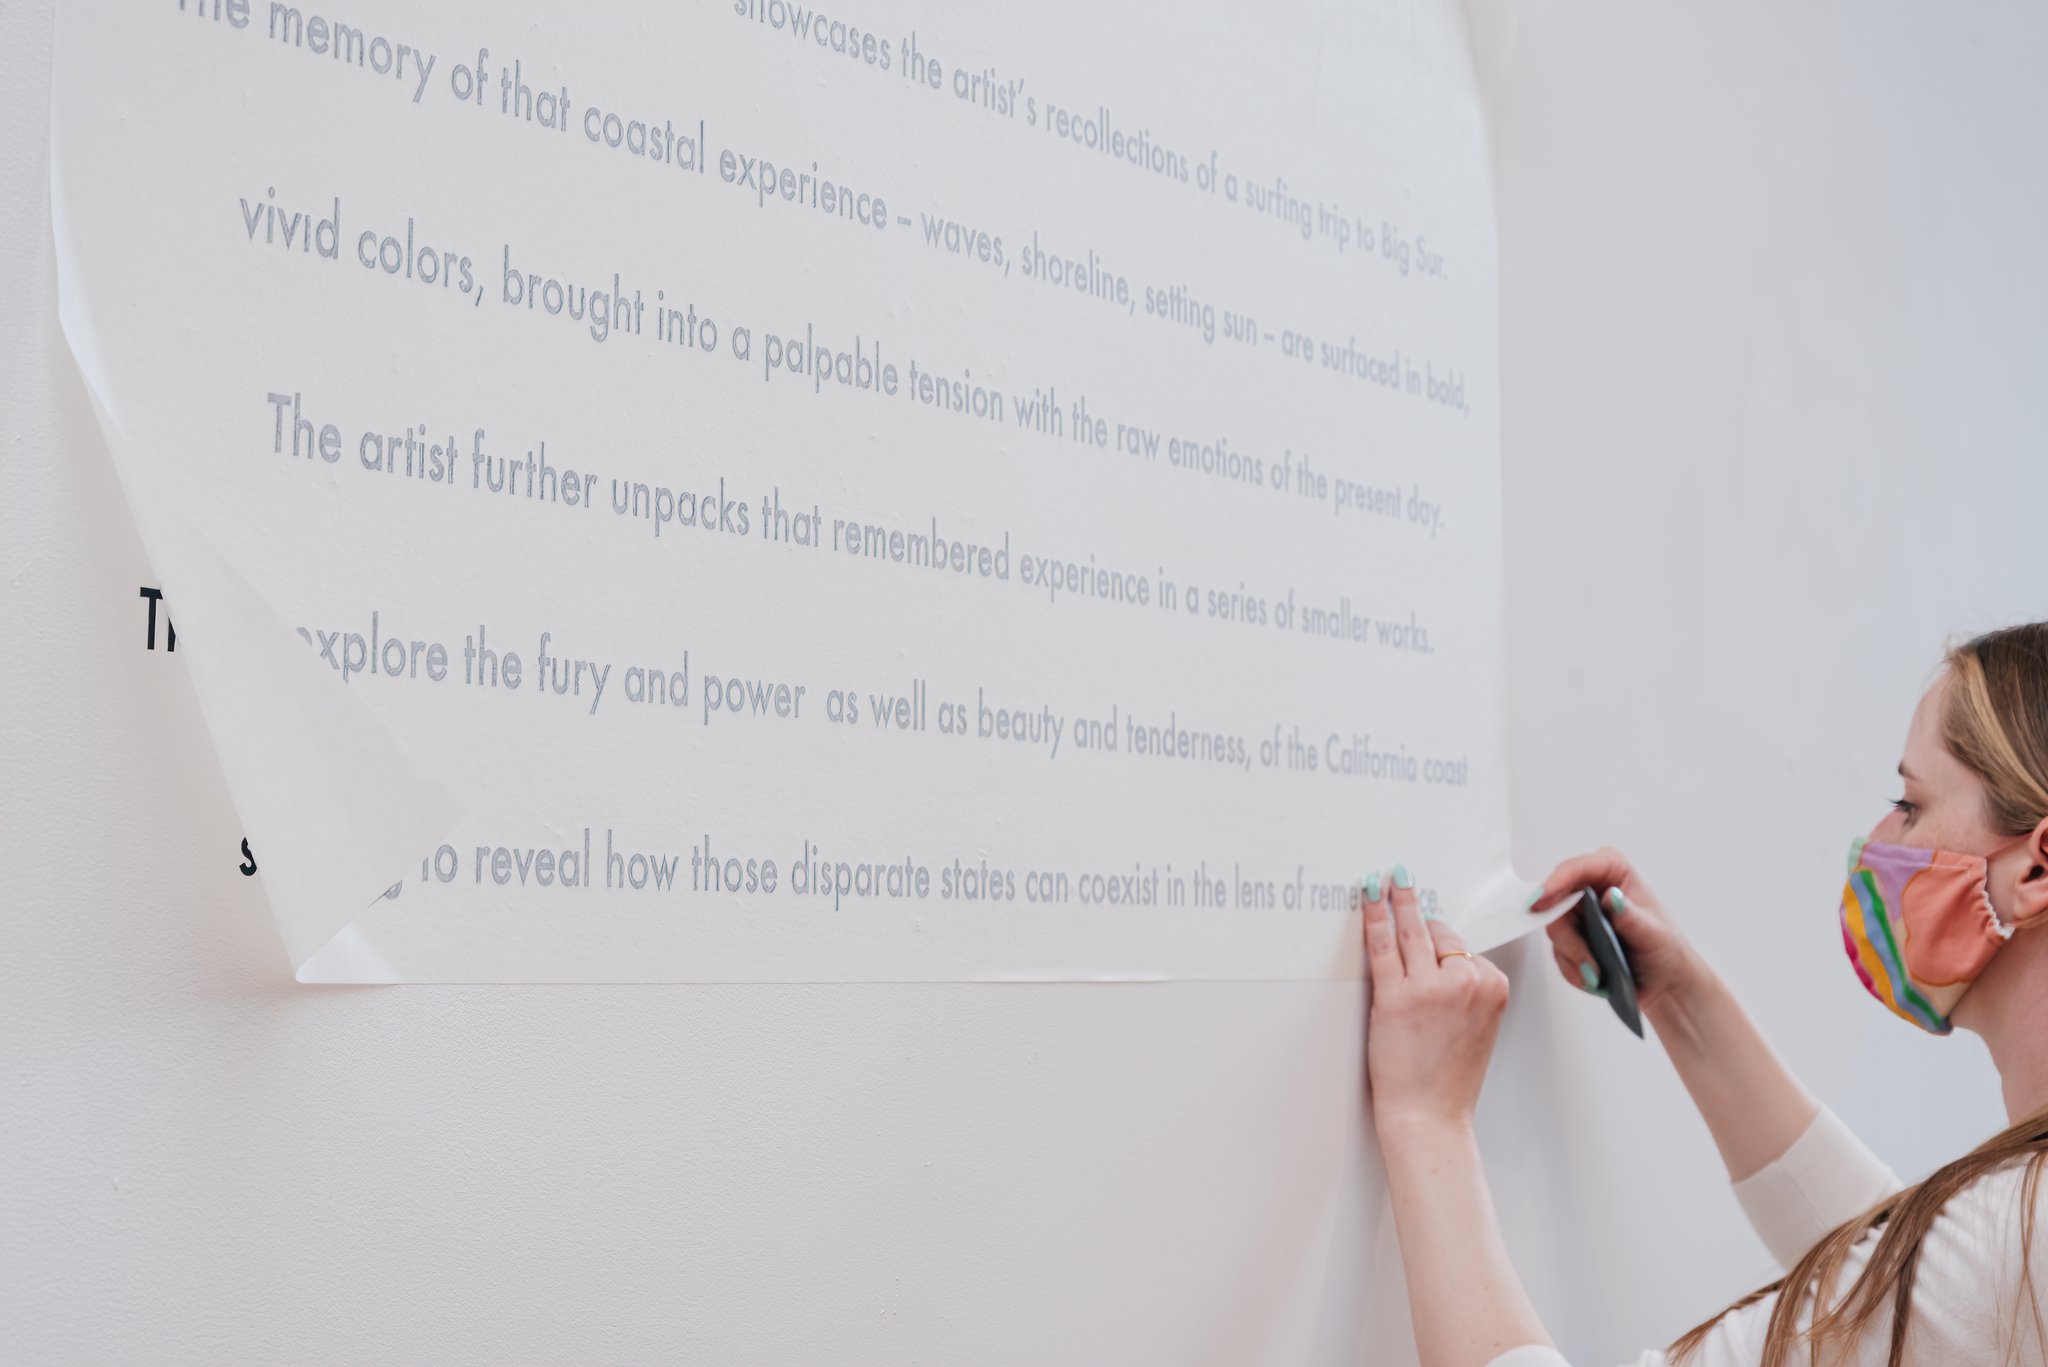 showcases the artist's recollections of a surfing trip to Big Sur.
The memory of that coastal experience – waves, shoreline, setting sun – are surfaced in bold,
vivid colors, brought into a palpable tension with the raw emotions of the present day.
The artist further unpacks that remembered experience in a series of smaller works.
explore the fury and power as well as beauty and tenderness, of the California coast
to reveal how those disparate states can coexist in the lens of